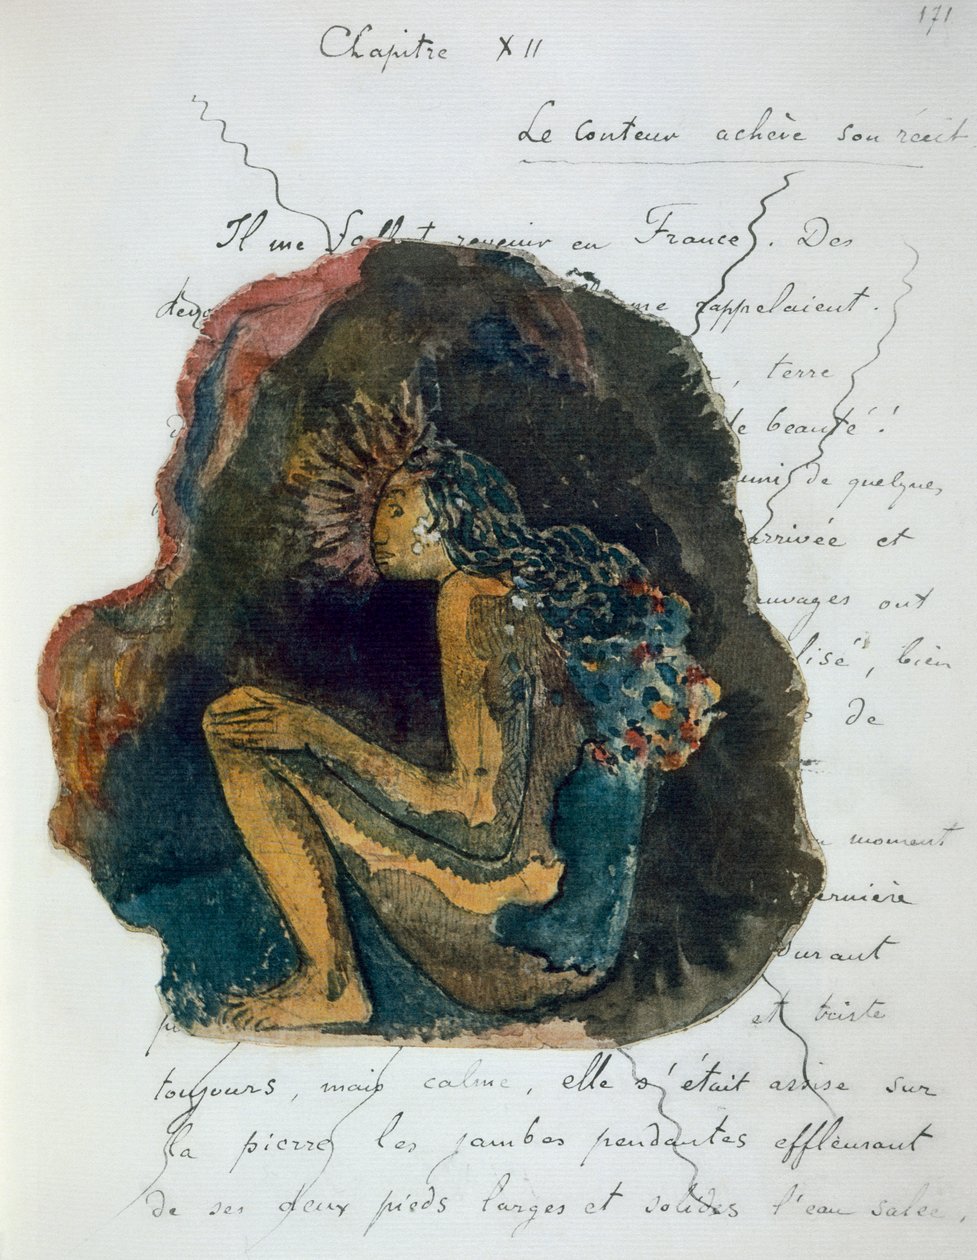 171
Chapitre XII
Le Conteur achève son récit
Il me fallut revenir en France. Des
me rappelaient.
, terre
de beauté!
uni de quelques
arrivée et
auvages ont
lisé", bien
de
moment
ernière
Durant
et triste
toujours, mais calme, elle s'était assise sur
la pierre les jambes pendantes effleurant
de ses deux pieds larges et solides l'eau salée.